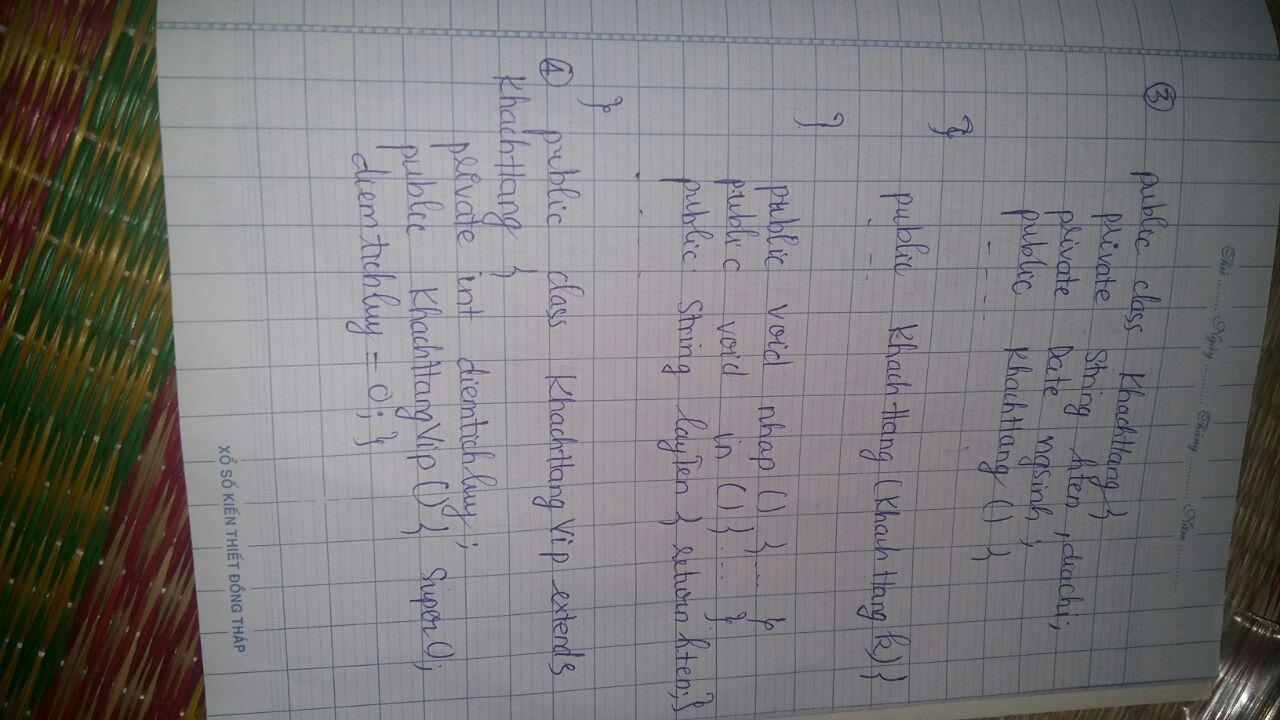 Thứ ........ Ngày .......... Tháng .......... Năm ...........
③ public class KhachHang {
private String hten , diachi;
private Date ngsinh ;
public KhachHang () {
- - - -
}
public KhachHang (KhachHang k) {
- - -
}
public void nhap () { ... }
public void in () { ... }
public String layTen { return hten; }
- - - -
}
④ public class KhachHangVip extends
KhachHang {
private int diemtichluy ;
public KhachHangVip () { Super();
diemtichluy = 0; }
XỔ SỐ KIẾN THIẾT ĐỒNG THÁP